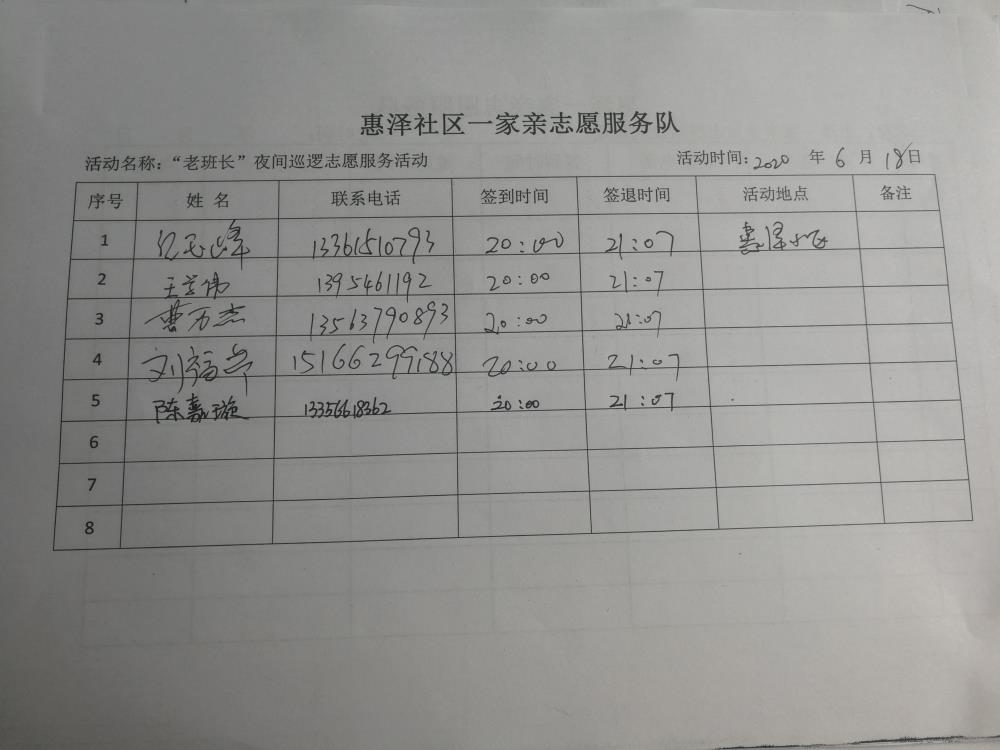 惠泽社区一家亲志愿服务队
活动名称：“老班长”夜间巡逻志愿服务活动 活动时间：2020 年 6 月 18日
序号 姓 名 联系电话 签到时间 签退时间 活动地点 备注
1 纪玉峰 13361510793 20:00 21:07 惠泽小区
2 王学伟 1395461192 20:00 21:07
3 曹万杰 13563790893 20:00 21:07
4 刘福 15166299188 20:00 21:07
5 陈嘉璇 13356618362 20:00 21:07
6
7
8